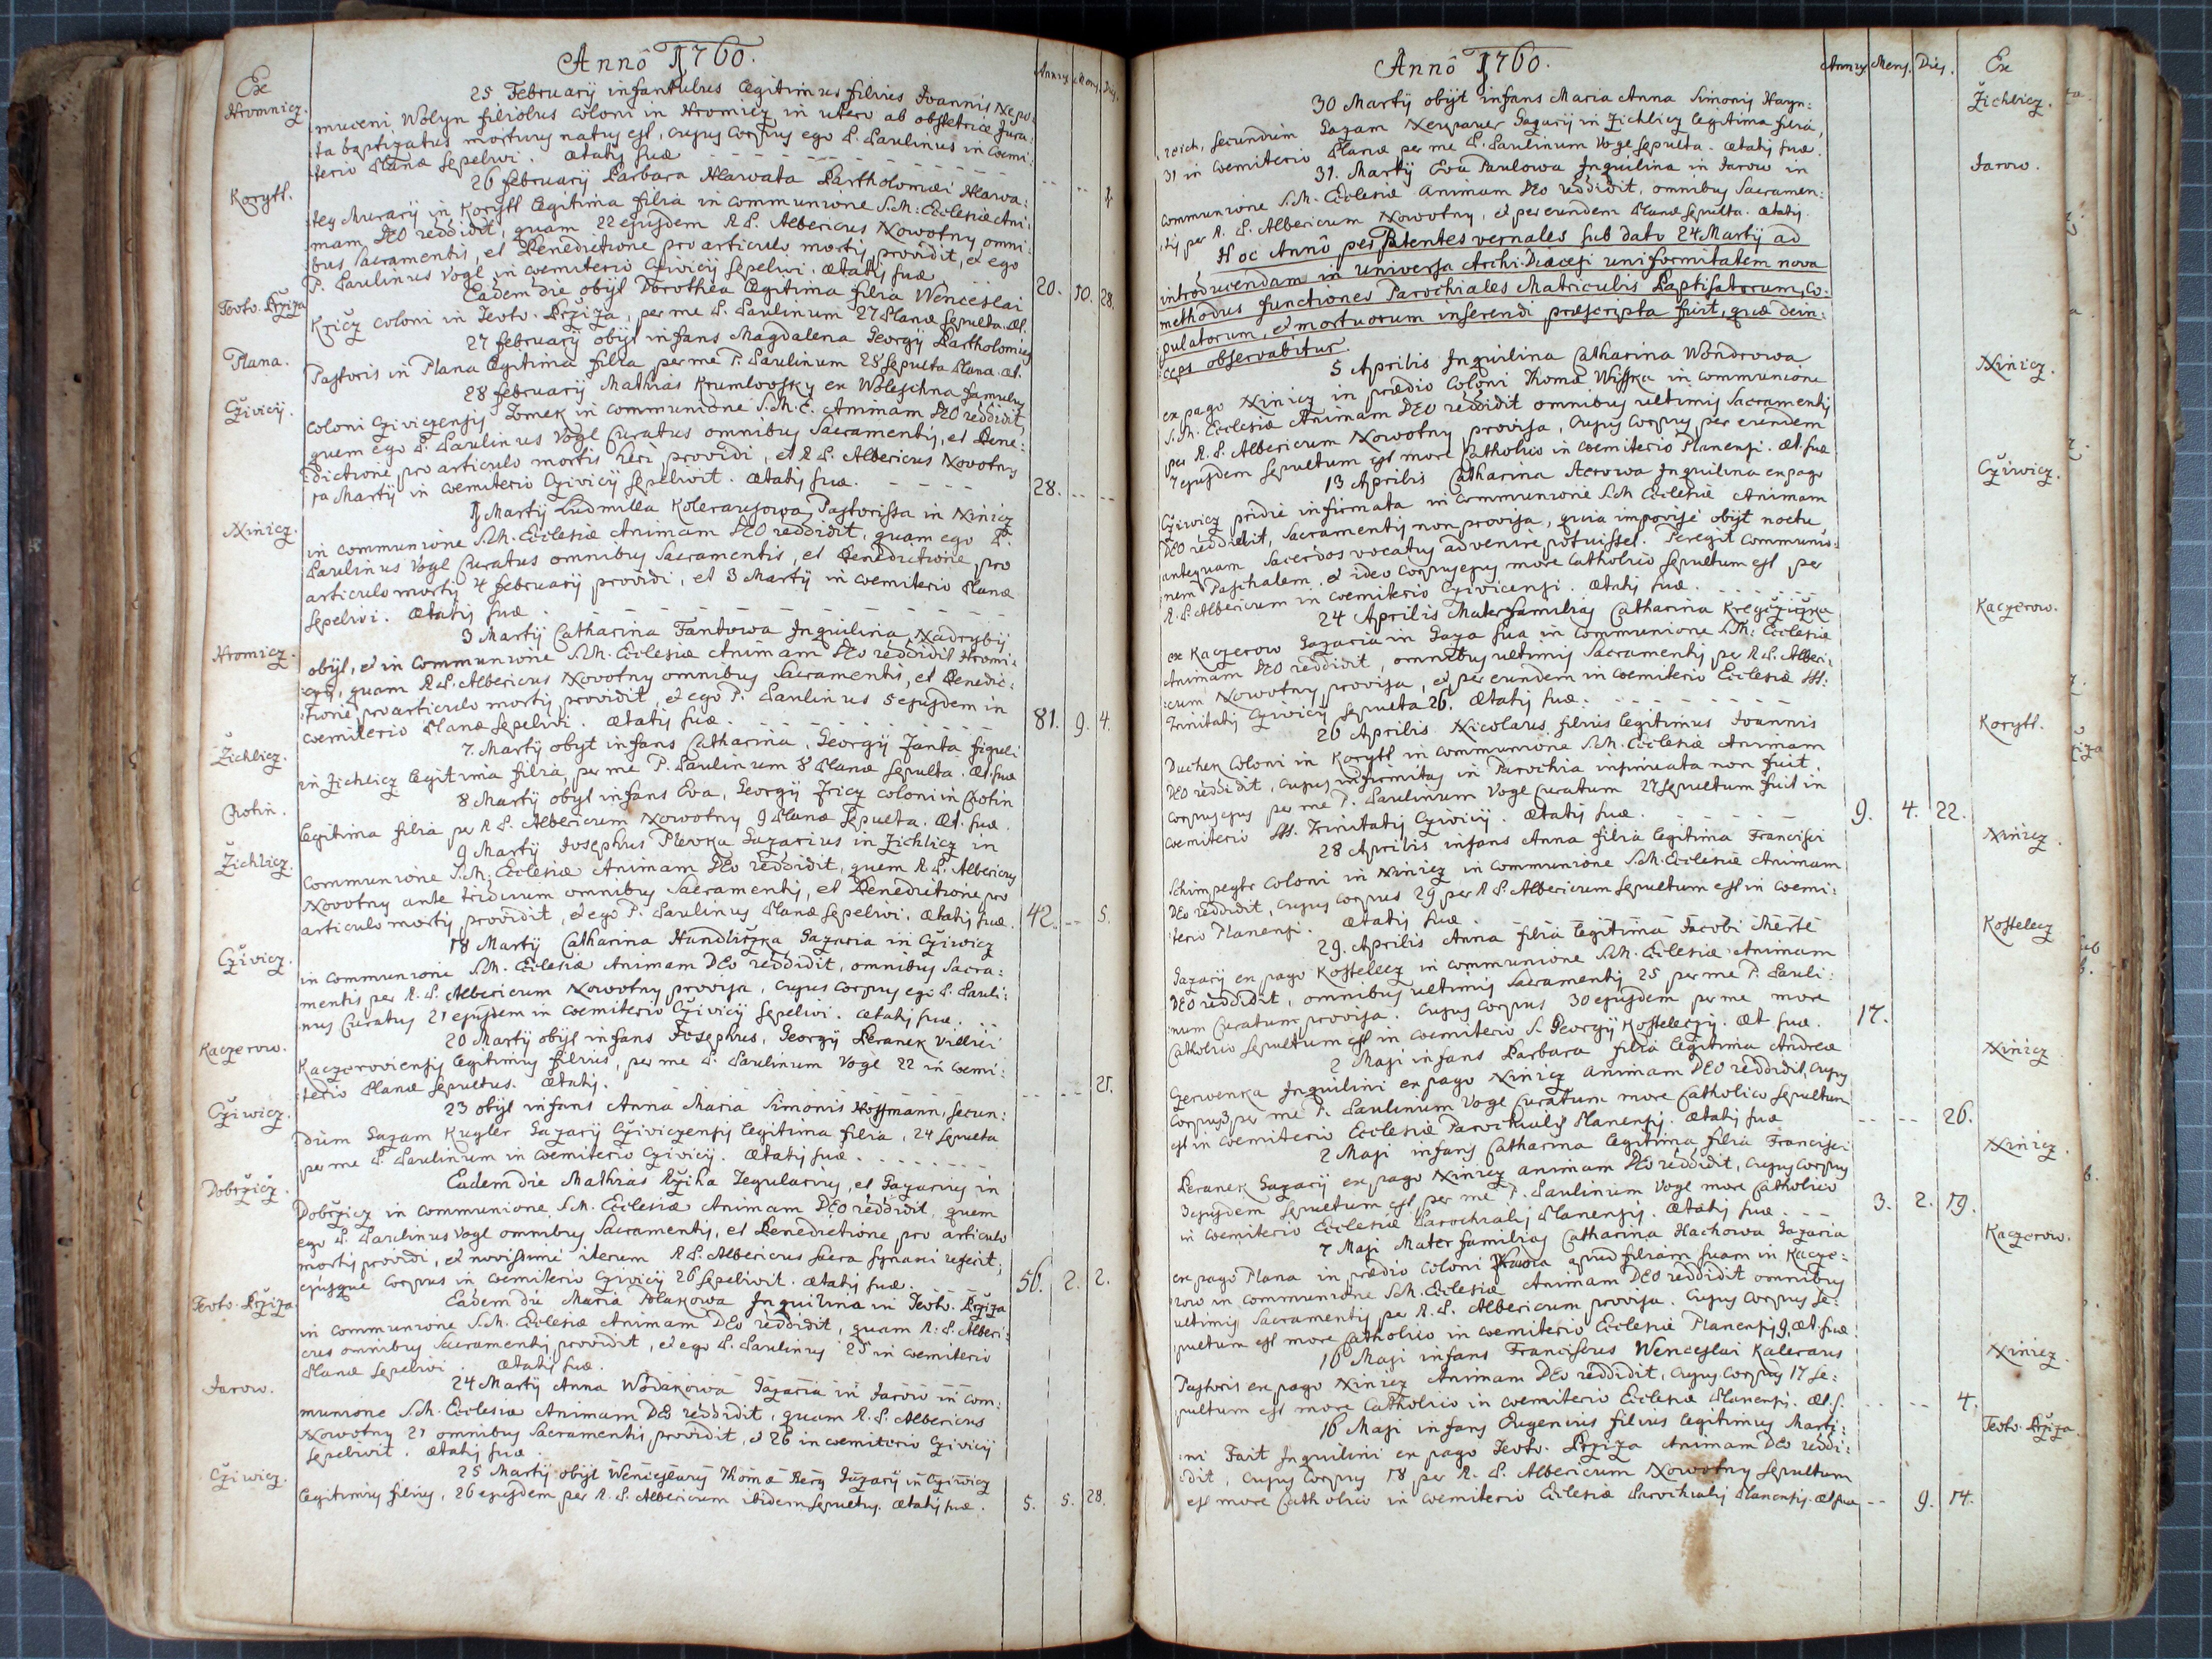 Annô 1760.
Annrȝ Mens. Dies.
Ex
Hromnicz.
25 Februarij infantulus legitimus filius Joannis Nepo:
muceni Wolyn filiolus coloni in Hromicz in utero ab obstetrice Jura:
ta baptizatus mortuus natus est, cujus corpus ego P. Paulinus in coemi:
terio Planæ sepelivi. Ætatis suæ
Korytl.
26 februarij Barbara Harvata Bartholomæi Harva:
tey Murarij in Korytl legitima filia in communione S.M. Ecclesiæ Ani:
mam DEO reddidit, quam 22 ejusdem R.P. Albericus Nowotny omni:
bus sacramentis, et Benedictione pro articulo mortis providit, et ego
P. Paulinus Vogl in coemiterio Czivicij sepelivi. Ætatis suæ 20. 10. 28.
Teuto. Brziza
Eadem die obijt Dorothea legitima filia Wenceslai
Krzicz coloni in Teuto. Brziza, per me P. Paulinum 27 Planæ sepulta. Æt.
Plana.
27 februarij obijt infans Magdalena Georgij Bartholomæi
Pastoris in Plana legitima filia per me P. Paulinum 28 sepulta Plana. Æt.
Czivicij.
28 februarij Mathias Krumlovsky ex Woleschna famulus
coloni Cziviczensis Tomek in communione S.M.E. Animam DEO reddidit,
quem ego P. Paulinus Vogl Curatus omnibus sacramentis, et Bene:
dictione pro articulo mortis heri providi, et R.P. Albericus Novotny
1a Martij in coemiterio Czivicij sepelivit. Ætatis suæ. 28.
Xinicz.
1 Martij Ludmilla Kolerausowa Pastorissa in Xinicz
in communione S.M. Ecclesiæ Animam DEO reddidit, quam ego P.
Paulinus Vogl Curatus omnibus sacramentis, et Benedictione pro
articulo mortis 4 februarij providi, et 3 Martij in coemiterio Planæ
sepelivi. Ætatis suæ.
Hromicz.
3 Martij Catharina Fantowa Inquilina Nadrybij
obijt, et in communione S.M. Ecclesiæ Animam DEO reddidit Hromi:
quam R.P. Albericus Novotny omnibus Sacramentis, et Benedic:
tione pro articulo mortis providit, et ego P. Paulinus 5 ejusdem in
coemiterio Planæ sepelivi. Ætatis suæ. 81. 9. 4.
Žichlicz.
7. Martij obijt infans Catharina, Georgij Janta figuli
in Zichlicz legitima filia, per me P. Paulinum 8 Planæ sepulta. Æt. suæ
Chotin.
8 Martij obijt infans Eva, Georgij Fricz coloni in Chotin
legitima filia per R.P. Albericum Nowotny 9 Planæ sepulta. Æt. suæ.
Žichlicz.
9 Martij Josephus Plevka Gazarius in Zichlicz in
communione S.M. Ecclesiæ Animam DEO reddidit, quem R.P. Albericus
Novotny ante triduum omnibus Sacramentis, et Benedictione pro
articulo mortis providit, et ego P. Paulinus Planæ sepelivi. Ætatis suæ. 42. -- 5.
Cživicz.
18 Martij Catharina Handližka Gazaria in Cziwicz
in communione S.M. Eclesiæ Animam DEO reddidit, omnibus Sacra:
mentis per R.P. Albericum Nowotny provisa, cujus corpus ego P. Pauli:
nus Curatus 21 ejusdem in coemiterio Czivicij sepelivi. Ætatis suæ.
Kaczerow.
20 Martij obijt infans Josephus, Georgij Beranek Villici
Kaczeroviensis legitimus filius, per me P. Paulinum Vogl 22 in coemi:
terio Planæ sepultus. Ætatis. -- -- 21.
Cziwicz.
23 obijt infans Anna Maria Simonis Hoffmann, secun:
dum Gazam Kugler Gazarij Cziviczensis legitima filia, 24 sepulta
per me P. Paulinum in coemiterio Czivicij. Ætatis suæ.
Dobržicz.
Eadem die Mathias Ržiha Tegularius, et Gazarius in
Dobržicz in communione S.M. Ecclesiæ Animam DEO reddidit, quem
ego P. Paulinus Vogl omnibus Sacramentis, et Benedictione, pro articulo
mortis providi, et novissime iterum R.P. Albericus sacra synaxi refecit,
ejusque corpus in coemiterio Czivicij 26 sepelivit. Ætatis suæ. 56. 2. 2.
Teuto. Bržiza.
Eadem die Maria Polakowa Inquilina in Teuto. Bržiza
in communione S.M. Ecclesiæ Animam DEO reddidit, quam R.P. Alberi:
cus omnibus Sacramentis providit, et ego P. Paulinus 25 in coemiterio
Planæ sepelivi. Ætatis suæ.
Jarow.
24 Martij Anna Wodakowa Gazaria in Jarow in com:
munione S.M. Ecclesiæ Animam DEO reddidit, quam R.P. Albericus
Nowotny 21 omnibus Sacramentis providit, et 26 in coemiterio Czivicij
sepelivit. Ætatis suæ.
Cziwicz.
25 Martij obijt Wenceslaus Thomæ Berg Gazarij in Cziwicz
legitimus filius, 26 ejusdem per R.P. Albericum ibidem sepultus. Ætatis suæ. 5. 5. 28.
Annô 1760.
Annrȝ Mens. Dies.
Ex
Žichlicz.
30 Martij obijt infans Maria Anna Simonis Hayn:
reich, secundum Gazam Neupauer Gazarij in Zichlicz legitima filia,
31 in coemiterio Planæ per me P. Paulinum Vogl sepulta. Ætatis suæ.
Jarow.
31. Martij Eva Paulowa Inquilina in Jarow in
communione S.M. Ecclesiæ Animam DEO reddidit, omnibus Sacramen:
tis per R.P. Albericum Nowotny, et per eundem Planæ sepulta. Ætatis.
Hoc Annô per Patentes vernales sub dato 24 Martij ad
introducendam in universa Archi-Diæcesi uniformitatem nova
methodus functiones Parochiales Matriculis Baptisatorum, Co:
pulatorum, et mortuorum inserendi præscripta fuit, quæ dein:
ceps observabitur.
Xinicz.
5 Aprilis Inquilina Catharina Wondrowa
ex pago Xinicz in prædio Coloni Thomæ Wisska in communione
S.M. Ecclesiæ Animam DEO reddidit omnibus ultimis Sacramentis
per R.P. Albericum Nowotny provisa, cujus Corpus per eundem
7 ejusdem sepultum est more Catholico in coemiterio Planensi. Æt. suæ
Czivwicz.
13 Aprilis Catharina Acrowa Inquilina ex pago
Cziwicz pridie infirmata in communione S.M Ecclesiæ Animam
DEO reddidit, Sacramentis non provisa, quia improvise obijt noctu,
antequam Sacerdos vocatus advenire potuisset. Peregit communio:
nem Paschalem, et ideo corpus ejus more Catholico sepultum est per
R.P. Albericum in coemiterio Czivicensi. Ætatis suæ.
Kaczerow.
24 Aprilis Mater familias Catharina Kregčzižka
ex Kaczerow Gazaria in Gaza sua in communione S.M. Ecclesiæ
Animam DEO reddidit, omnibus ultimis Sacramentis per R.P. Alberi:
cum Nowotny provisa, et per eundem in coemiterio Ecclesiæ SSS:
Trinitatis Czivicij sepulta 26. Ætatis suæ.
Korytl.
26 Aprilis Nicolaus filius legitimus Joannis
Duchek Coloni in Korytl in communione S.M. Ecclesiæ Animam
DEO reddidit, cujus infirmitas in Parochia insinuata non fuit,
corpus ejus per me P. Paulinum Vogl Curatum 27 sepultum fuit in
coemiterio SSS. Trinitatis Czivicij. Ætatis suæ. 9. 4. 22.
Xinicz
28 Aprilis infans Anna filia legitima Francisci
Schimpeghr Coloni in Xinicz in communione S.M. Ecclesiæ Animam
DEO reddidit, cujus corpus 29 per R.P. Albericum sepultum est in coemi:
terio Planensi. Ætatis suæ.
Kostelecz
29. Aprilis Anna filia legitima Jacobi Merte
Gazarij ex pago Kostelecz in communione S.M. Ecclesiæ Animam
DEO reddidit, omnibus ultimis Sacramentis 25 per me P. Pauli:
num Curatum provisa. Cujus corpus 30 ejusdem per me more
Catholico sepultum est in coemiterio S. Georgij Kosteleczij. Æt. suæ. 17.
Xinicz
2 Maji infans Barbara filia legitima Andreæ
Czerwenka Inquilini ex pago Xinicz Animam DEO reddidit, cujus
Corpus 3 per me P. Paulinum Vogl Curatum more Catholico sepultum
est in coemiterio Ecclesiæ Parochialis Planensis. Ætatis suæ -- -- 26.
Xinicz.
2 Maji infans Catharina legitima filia Francisci
Beranek Gazarij ex pago Xinicz animam DEO reddidit, cujus corpus
3 ejusdem sepultum est per me P. Paulinum Vogl more Catholico
in coemiterio Ecclesiæ Parochialis Planensis. Ætatis suæ. 3. 2. 19.
Kaczerow.
7 Maji Mater familias Catharina Hachowa Gazaria
ex pago Plana in prædio coloni apud filiam suam in Kacze:
row in communione S.M. Ecclesiæ Animam DEO reddidit omnibus
ultimis Sacramentis per R.P. Albericum provisa. Cujus corpus se:
pultum est more Catholico in coemiterio Ecclesiæ Planensis 9. Æt. suæ.
Xinicz.
16 Maji infans Franciscus Wenceslai Kalaraus
Pastoris ex pago Xinicz Animam DEO reddidit, cujus Corpus 17 se:
pultum est more Catholico in coemiterio Ecclesiæ Planensis. Æt. S. -- -- 4.
Teuto. Bržiza.
16 Maji infans Eugenius filius legitimus Marti:
ni Fait Inquilini ex pago Teuto. Brziza Animam DEO reddi:
dit, cujus corpus 18 per R.P. Albericum Nowotny sepultum
est more Catholico in coemiterio Ecclesiæ Parochialis Planensis. Æt. suæ -- 9. 14.